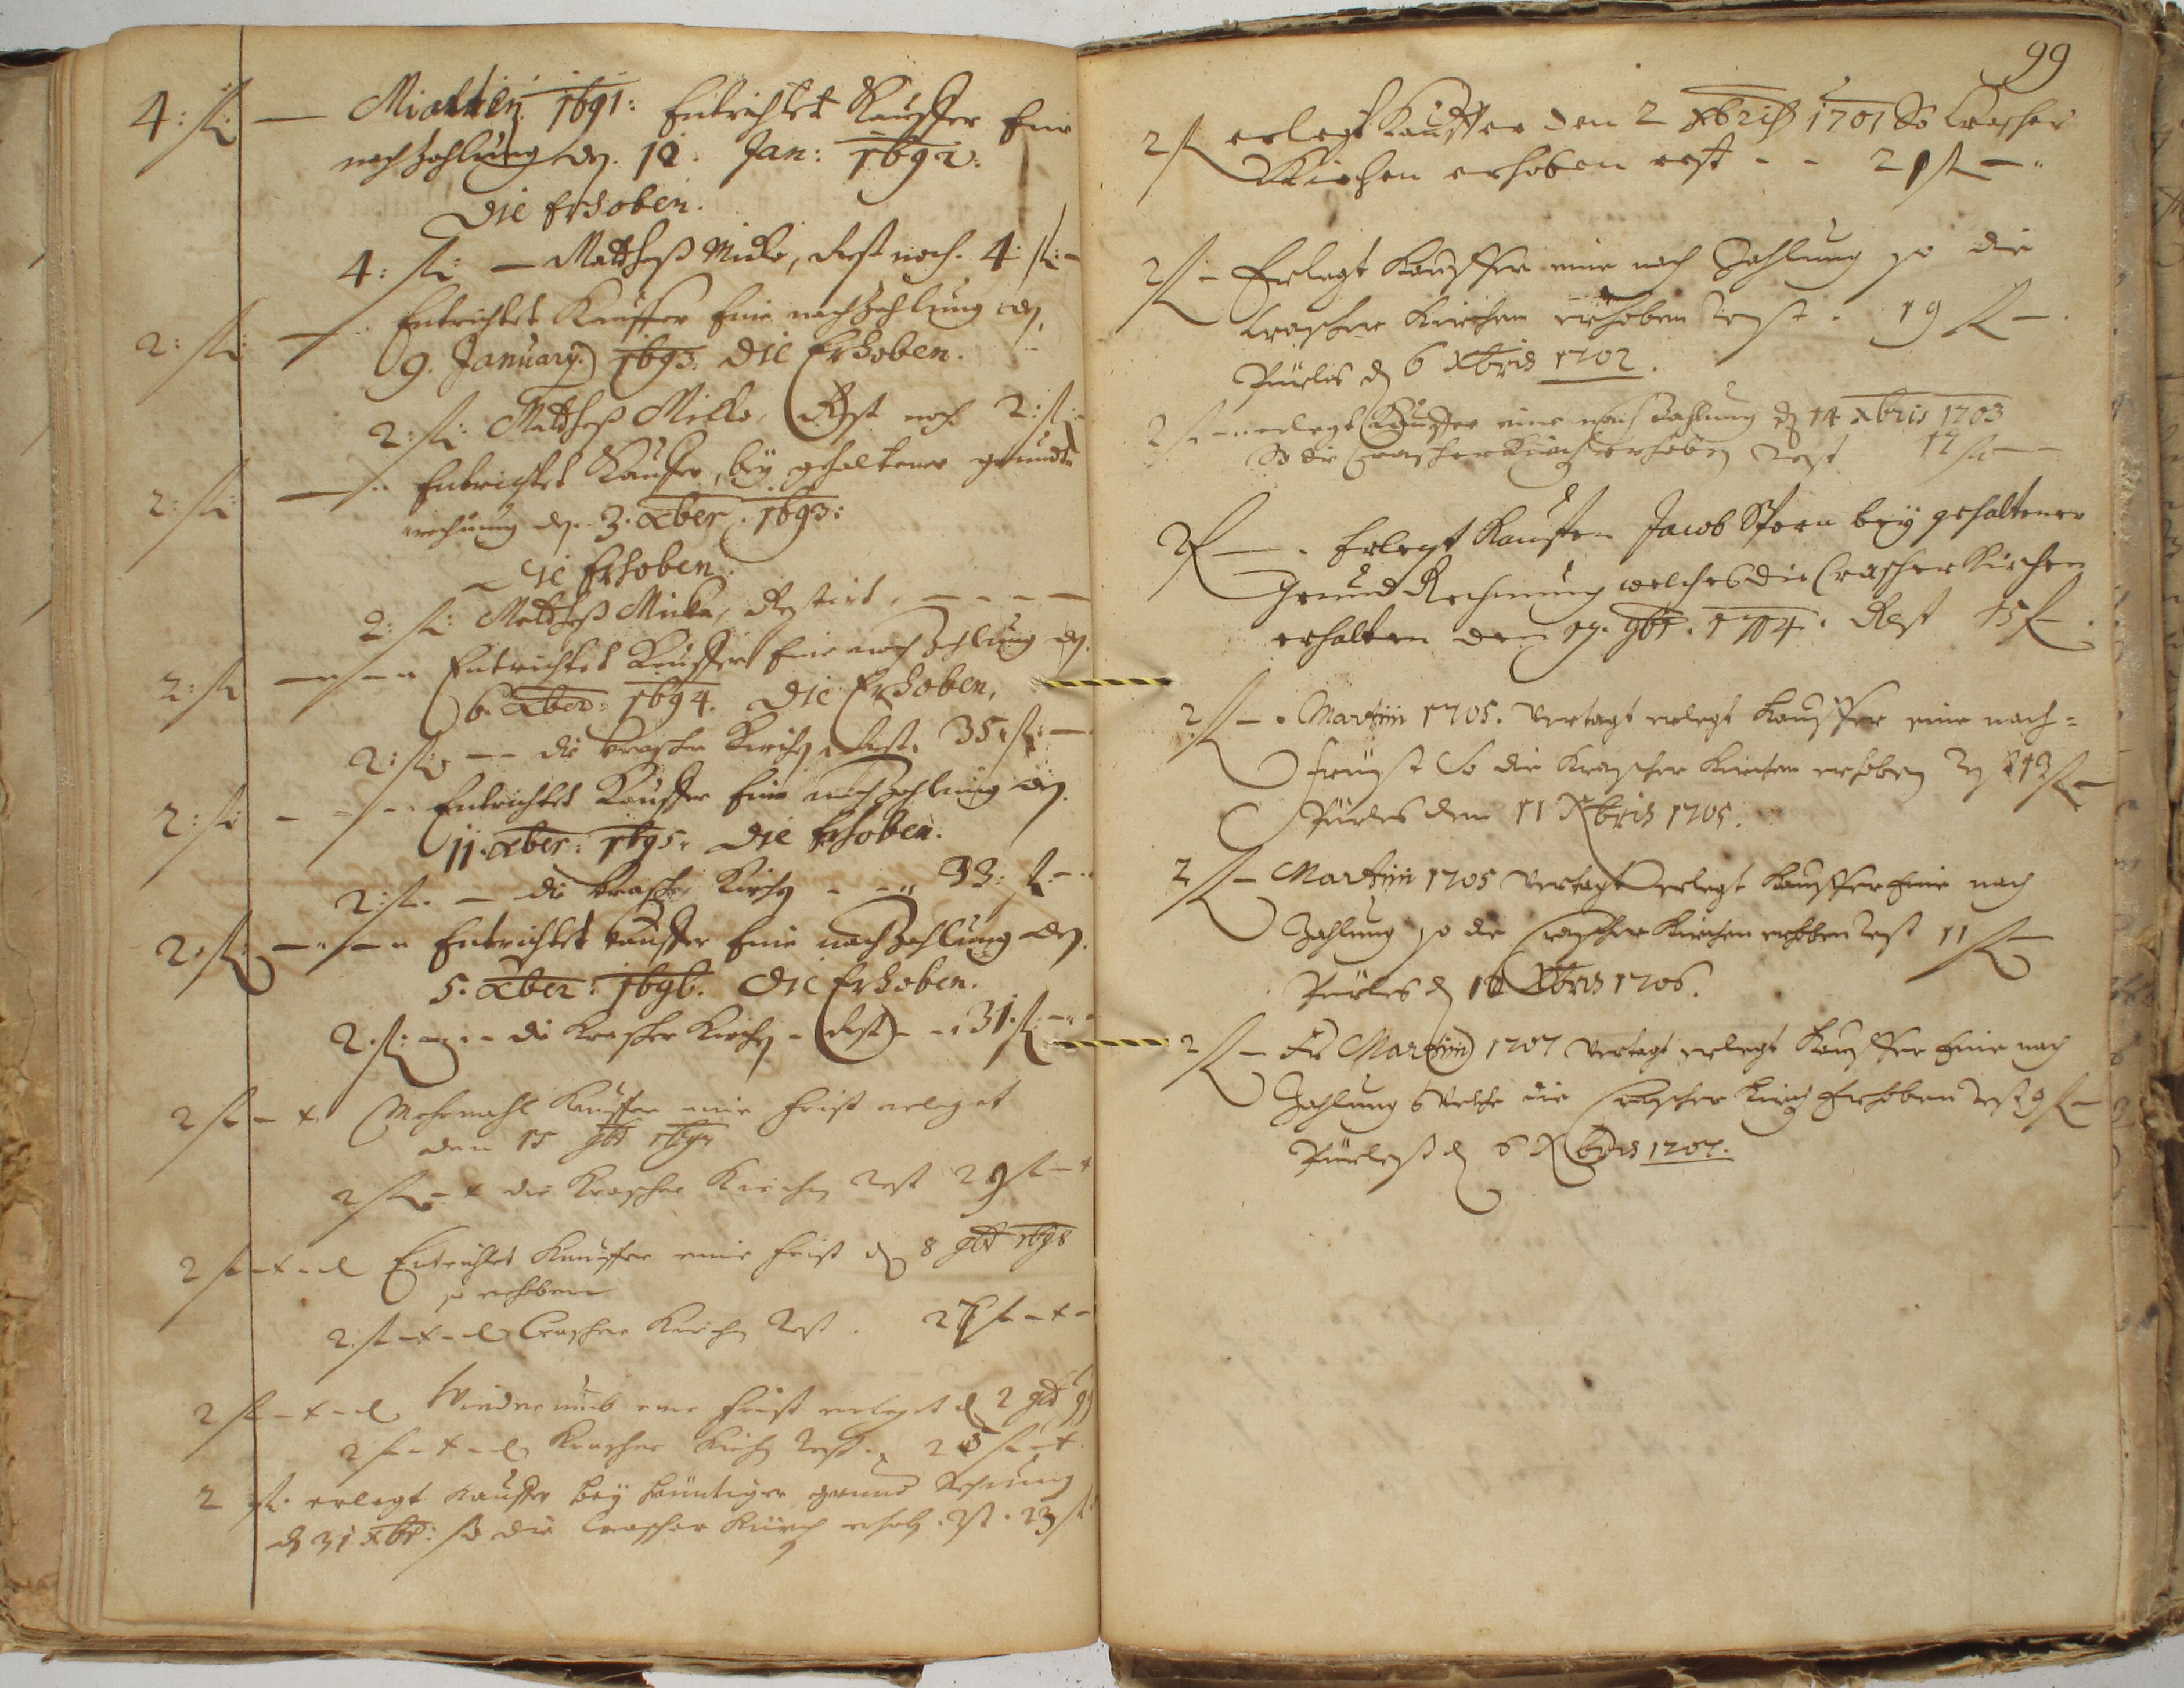 4: fl: — Michaeli 1691: Entrichtet Kauffer Eine
nachzahlung den. 12. Jan: 1692:
Die Erhoben.
4: fl: — Mattheß Micko, Rest noch. 4: fl: —
2: fl: — Entrichtet Kauffer Eine nachzahlung den,
9. January: 1693. Die Erhoben.
2: fl: Mattheß Micko, Rest noch 2: fl: —
2: fl: — Entrichtet Kauffer, bey gehaltener grundt
rechnung den. 3. xber. 1693:
Die Erhoben.
2: fl: Mattheß Micko, Restirt, — — —
2: fl — Entrichtet Kauffer Eine nachzahlung den.
6. xber: 1694. Die Erhoben,
2: fl: — die Krascher Kirchen, Rest. 35: fl: —
2: fl: — Entrichtet Kauffer Eine nachzahlung den.
11. xber: 1695. Die Erhoben.
2: fl. — die Krascher Kirchen — 33: fl: —
2. fl: — Entrichtet Kauffer Eine nachzahlung den.
5. xber: 1696. Die Erhoben.
2. fl: — die Krascher Kirchen — Rest — 31. fl: —
2 fl — x Mehrmahl Kauffer eine frist erleget
den 15 9br 1697
2 fl — x die Krascher Kirchen Rest 29 fl — x
2 fl — x — d Entrichtet Kauffer eine frist den 8 9br 1698
so erhoben
2. fl — x — d Crascher Kirchen Rest. 27 fl — x —
2 fl — x — d Wiederumb eine frist erleget d 2 9br 99
2 fl — x — d Krascher Kirchen Rest. 25 fl — x.
2 fl. erlegt Kauffer bey heuntiger grund Rechnung
den 31 xbr: so die Crascher Kirch erhob. Rst. 23 fl
99
2 fl erlegt Kauffer den 2 xbriß 1701 So Crascher
Kirchen erhoben rest — — 21 fl —
2 fl — Erlegt Kauffer eine nach Zahlung so die
Crascher Kirchen erhoben Rest. 19 fl —
Pürles d 6 Xbris 1702.
2 fl — erlegt Kauffer eine nach Zahlung d 14 xbris 1703
So die Crascher Kirch erhoben Rest 17 fl —
2 fl — . Erlegt Kauffer Jacob Storn bey gehaltener
Grund Rechnung welches die Crascher Kirchen
erhalten den 17. 9br. 1704. Rest 15 fl.
2 fl — . Martini 1705. vertagt erlegt Kauffer eine nach-
frist So die Krascher Kirchen erhoben Rest 13 fl —
Pürles den 11 Xbris 1705.
2 fl — Martini 1705 vertagt erlegt Kauffer Eine nach
Zahlung so die Crascher Kirchen erhoben Rest 11 fl —
Pürles d 16 Xbris 1706.
2 fl — Fr Martini 1707 vertagt erlegt Kauffer Eine nach
Zahlung Welche die Crascher Kirch Erhoben Rest 9 fl —
Pürleß d 6 Xbris 1707.